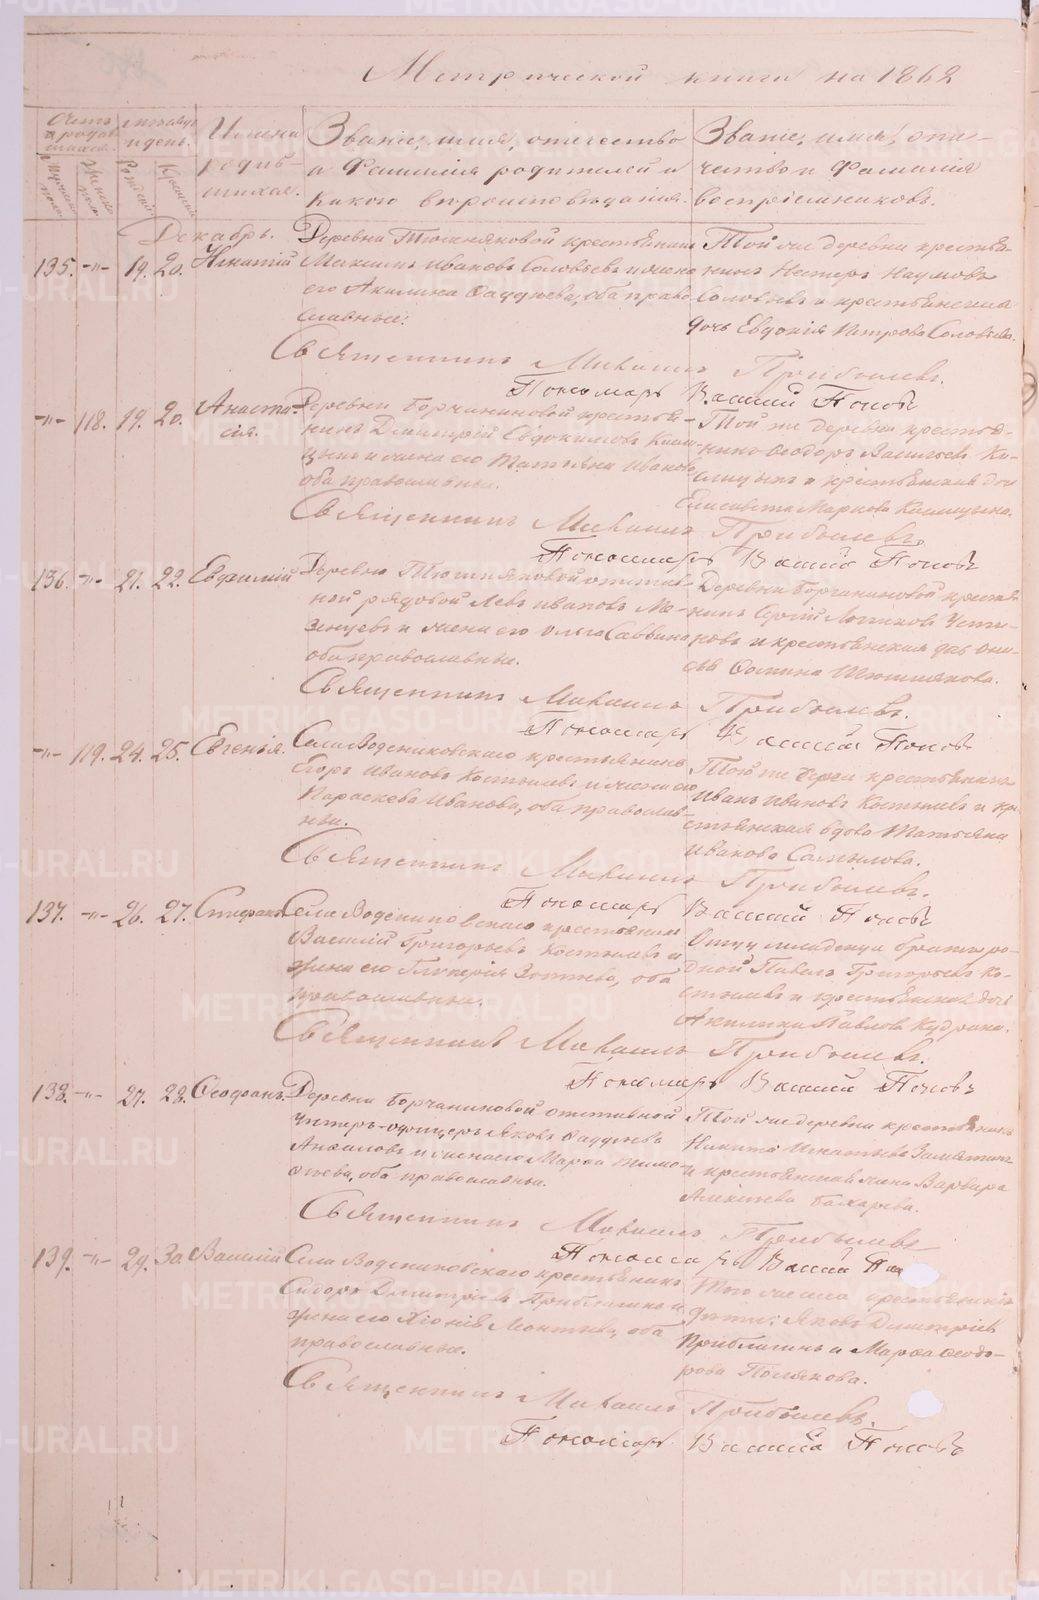 Метрической книги на 1862
Счетъ родившихся
Мужеска пола
Женска пола
мѣсяцъ и день
Рожденія
Крещенія
Имена родившихся.
Званіе, имя, отечество
и Фамилія родителей и
какого вѣроисповѣданія.
Званіе, имя, оте-
чество и Фамилія
воспріемниковъ.
Декабрь.
135. -"- 19. 20. Игнатій
Деревни Тюшняковой крестьянинъ
Максимъ Ивановъ Соловьевъ и жена
его Акилина Фаддѣева, оба право
славные.
Той же деревни крестья-
нинъ Нестеръ Наумовъ
Соловьевъ и крестьянская
дочь Евдокія Петрова Соловьева.
Священникъ Михаилъ Прибылевъ.
Пономарь Василій Поповъ
-"- 118. 19. 20. Анаста-
сія.
Деревни Борчаниновой крестья-
нинъ Димитрій Евдокимовъ
и жена его Татьяна Иванова
оба православные.
Той же деревни крестья-
нинъ Ѳеодоръ Васильевъ
и крестьянская дочь
Елисавета Маркова
Священникъ Михаилъ Прибылевъ.
Пономарь Василій Поповъ
136. -"- 21. 22. Евфимій
Деревни Тюшняковой отстав-
ной рядовой Левъ Ивановъ Ме-
зенцевъ и жена его Ольга Саввина
оба православные.
Деревни Борчаниновой крестья
нинъ Сергій Логиновъ Усти-
новъ и крестьянская
Фомина Тюшнякова.
Священникъ Михаилъ Прибылевъ.
Пономарь Василій Поповъ
-"- 119. 24. 25. Евгенія.
Села Водениковскаго крестьянинъ
Егоръ Ивановъ Костылевъ и жена его
Параскева Иванова, оба православ-
ные.
Той же крестьянинъ
Иванъ Ивановъ Костылевъ и кре
стьянская вдова Татьяна
Иванова Самылова.
Священникъ Михаилъ Прибылевъ.
Пономарь Василій Поповъ
137. -"- 26. 27. Стефанъ
Села Водениковскаго крестьянинъ
Василій Григорьевъ Костылевъ и
жена его Гликерія Зотѣева, оба
православные.
Отцу младенца братъ ро-
дной Павелъ Григорьевъ Ко-
стылевъ и крестьянская дочь
Акилина Павлова Кудрина.
Священникъ Михаилъ Прибылевъ.
Пономарь Василій Поповъ
138. -"- 27. 28. Ѳеофанъ.
Деревни Борчаниновой отставной
унтеръ-офицеръ Яковъ Фаддѣевъ
и жена его Марѳа Тимо-
ѳеева, оба православные.
Той же деревни крестьянинъ
Никита Игнатьевъ Замятинъ
и крестьянская жена Варвара
Алексѣева Бахарева.
Священникъ Михаилъ Прибылевъ
Пономарь Василій По
139. -"- 29. 30. Василій
Села Водениковскаго крестьянинъ
Сидоръ Димитріевъ Приблагинъ и
жена его Хіонія Леонтьева, оба
православные.
Того же села крестьянскіе
дѣти: Яковъ Димитріевъ
Приблагинъ и Марѳа Ѳеодо-
рова Полякова.
Священникъ Михаилъ Прибылевъ.
Пономарь Василій Поповъ
METRIKI.GASO-URAL.RU